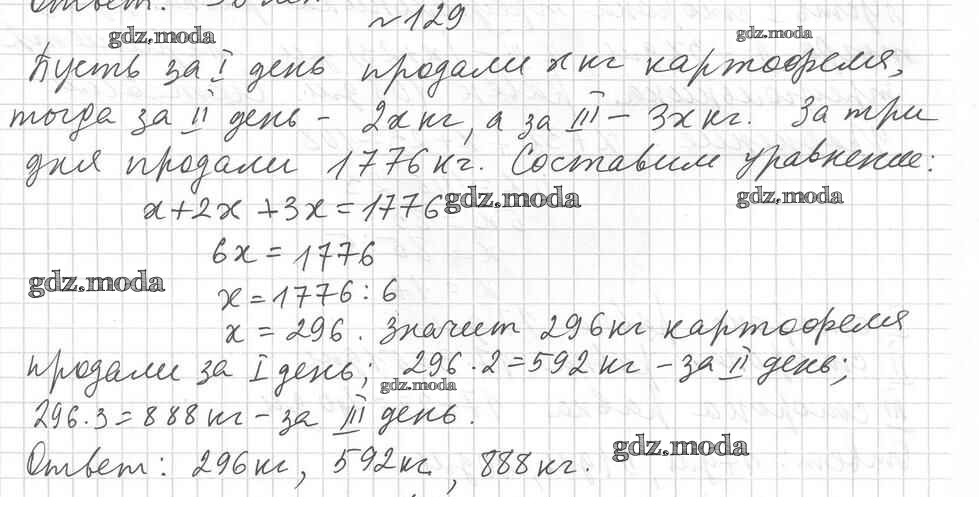 Ответ:
№129
gdz.moda
gdz.moda
Пусть за I день продали x кг картофеля,
тогда за II день - 2x кг, а за III - 3x кг. За три
дня продали 1776 кг. Составим уравнение:
x+2x+3x=1776
gdz.moda
gdz.moda
6x=1776
gdz.moda
x=1776:6
x=296. Значит 296 кг картофеля
продали за I день; 296·2=592 кг - за II день;
gdz.moda
296·3=888 кг - за III день.
gdz.moda
Ответ: 296 кг, 592 кг, 888 кг.